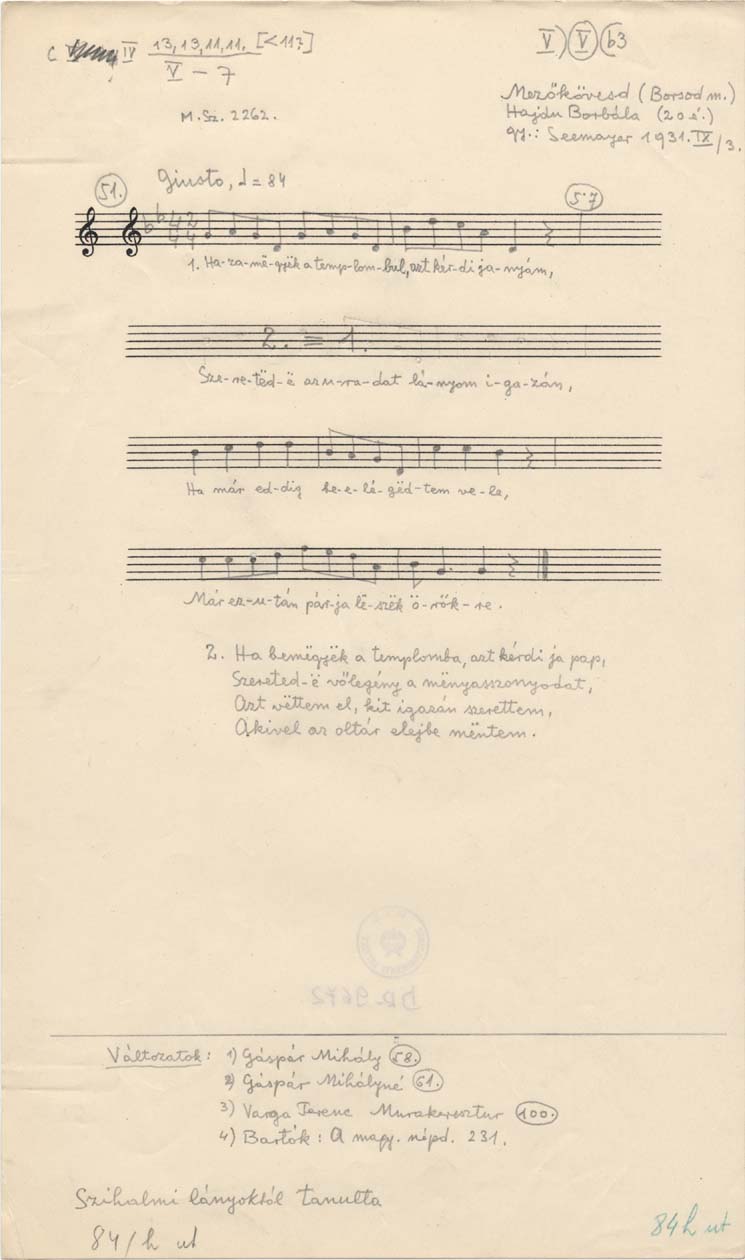 C IV 13, 13, 11, 11. [<117]
V – 7
V) V (b3
M. Sz. 2262.
Mezőkövesd (Borsod m.)
Hajdu Borbála (20 é.)
gy.: Seemayer 1931. IX/3.
51.
Giusto, ♩= 84
57
4 2
4 4
1. Ha-za-mëgyëk a temp-lom-bul, azt kér-di ja-nyám,
2. = 1.
Sze-re-tëd-ë az u-ra-dat lá-nyom i-ga-zán,
Ha már ed-dig be-e-lé-gëd-tem ve-le,
Már ez-u-tán pár-ja lë-szëk ö-rök-re.
2. Ha bemëgyëk a templomba, azt kérdi ja pap,
Szereted-ë vőlegény a mënyasszonyodat,
Azt vëttem el, kit igazán szerettem,
Akivel az oltár elejbe mëntem.
Változatok: 1) Gáspár Mihály 58.
2) Gáspár Mihályné 61.
3) Varga Ferenc Murakeresztur 100.
4) Bartók: A magy. népd. 231.
Szihalmi lányoktól tanulta
84/h ut
84 h ut